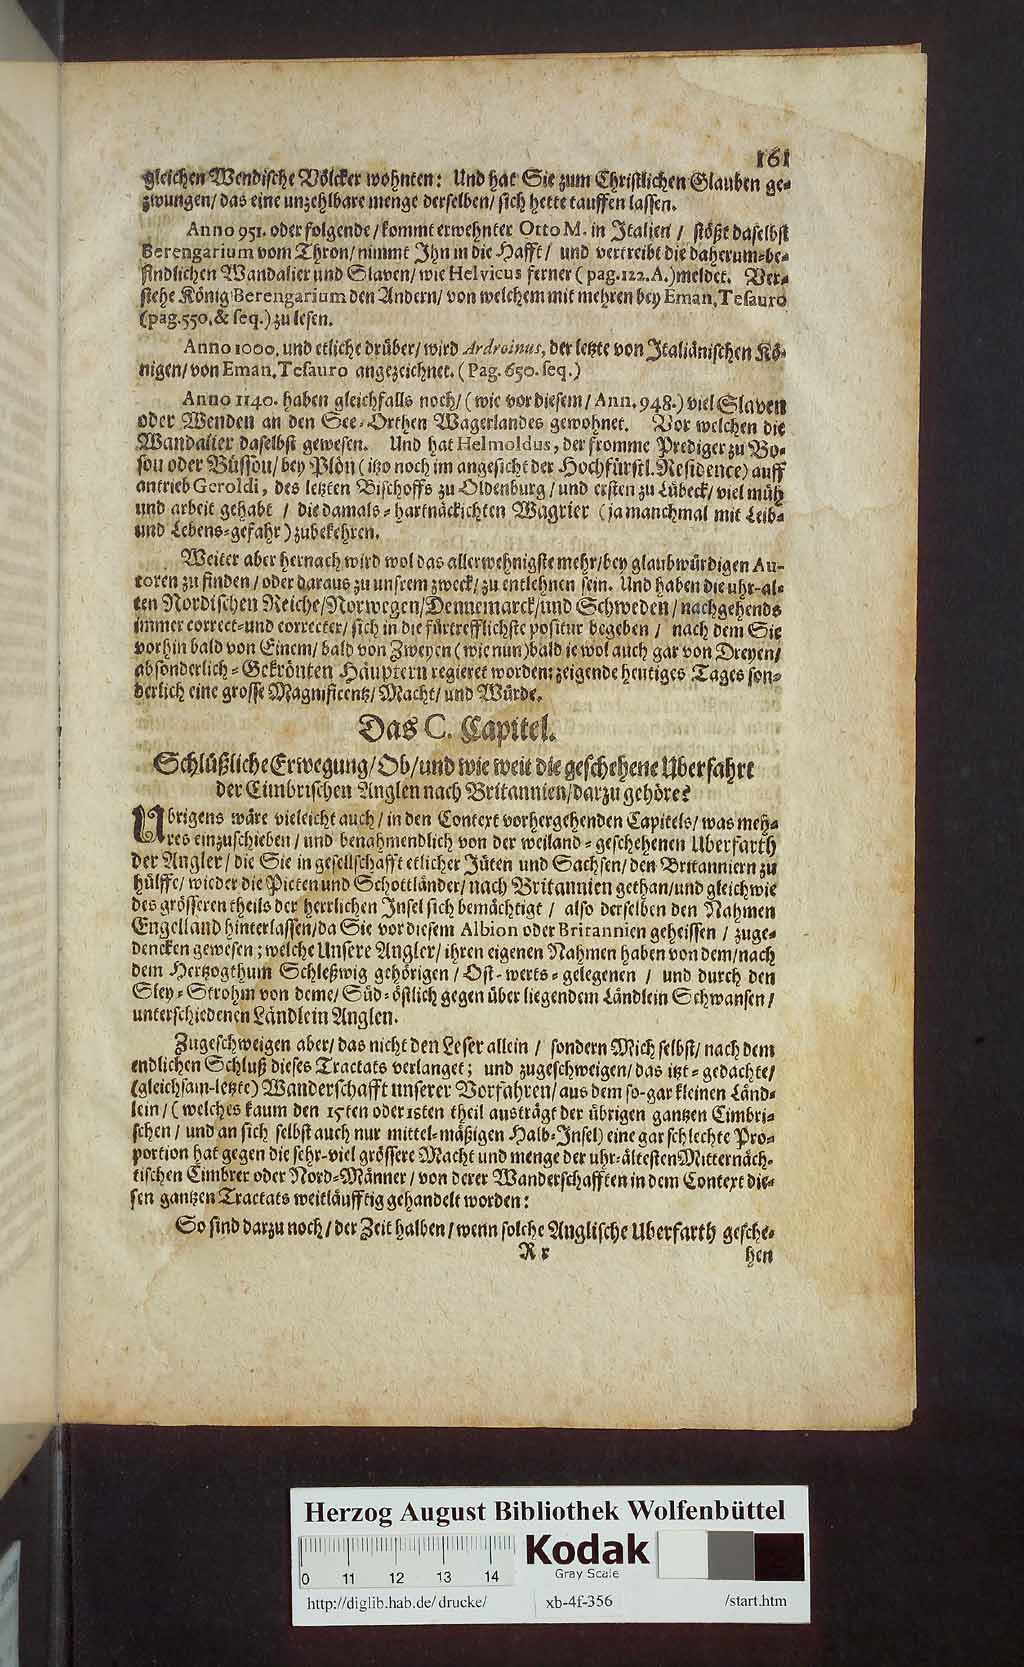 161
gleichen Wendische Völcker wohnten: Und hat Sie zum Christlichen Glauben ge-
zwungen/ das eine unzehlbare menge derselben/ sich hette tauffen lassen.
Anno 951. oder folgende/ kommt erwehnter Otto M. in Italien/ stößt daselbst
Berengarium vom Thron/ nimmt Ihn in die Hafft/ und vertreibt die daherum-be-
findlichen Wandalier und Slaven/ wie Helvicus ferner (pag. 122. A.) meldet. Ver-
stehe König Berengarium den Andern/ von welchem mit mehren bey Eman. Tesauro
(pag. 550. & seq.) zu lesen.
Anno 1000. und etliche drüber/ wird Ardroinus, der letzte von Italiänischen Kö-
nigen/ von Eman. Tesauro angezeichnet. (Pag. 650. seq.)
Anno 1140. haben gleichfalls noch/ (wie vor diesem/ Ann. 948.) viel Slaven
oder Wenden an den See-Orthen Wagerlandes gewohnet. Vor welchen die
Wandalier daselbst gewesen. Und hat Helmoldus, der fromme Prediger zu Bo-
sou oder Büssou/ bey Plön (itzo noch im angesicht der Hochfürstl. Residence) auff
antrieb Geroldi, des letzten Bischoffs zu Oldenburg/ und ersten zu Lübeck/ viel müh
und arbeit gehabt / die damals-hartnäckichten Wagrier (ja manchmal mit Leib-
und Lebens-gefahr) zubekehren.
Weiter aber hernach wird wol das allerwehnigste mehr/ bey glaubwürdigen Au-
toren zu finden/ oder daraus zu unsrem zweck/ zu entlehnen sein. Und haben die uhr-al-
ten Nordischen Reiche/ Norwegen/ Dennemarck/ und Schweden/ nachgehends
immer correct-und correcter/ sich in die fürtrefflichste positur begeben / nach dem Sie
vorhin bald von Einem/ bald von Zweyen (wie nun) bald je wol auch gar von Dreyen/
absonderlich-Gekrönten Häuptern regieret worden: zeigende heutiges Tages son-
derlich eine grosse Magnificentz/ Macht/ und Würde.
Das C. Capitel.
Schlüßliche Erwegung/ Ob/ und wie weit die geschehene Uberfahrt
der Cimbrischen Anglen nach Britannien/ darzu gehöre?
Ubrigens wäre vieleicht auch/ in den Context vorhergehenden Capitels/ was meh-
res einzuschieben/ und benahmendlich von der weiland-geschehenen Uberfarth
der Angler/ die Sie in gesellschafft etlicher Jüten und Sachsen/ den Britanniern zu
hülffe/ wieder die Picten und Schottländer/ nach Britannien gethan/ und gleichwie
des grösseren theils der herrlichen Insel sich bemächtigt / also derselben den Nahmen
Engelland hinterlassen/ da Sie vor diesem Albion oder Britannien geheissen / zuge-
dencken gewesen; welche Unsere Angler/ ihren eigenen Nahmen haben von dem/ nach
dem Hertzogthum Schleßwig gehörigen/ Ost-werts-gelegenen / und durch den
Sley-Strohm von deme/ Süd-östlich gegen über liegendem Ländlein Schwansen/
unterschiedenen Ländlein Anglen.
Zugeschweigen aber/ das nicht den Leser allein / sondern Mich selbst/ nach dem
endlichen Schluß dieses Tractats verlanget; und zugeschweigen/ das itzt-gedachte/
(gleichsam-letzte) Wanderschafft unserer Vorfahren/ aus dem so-gar kleinen Länd-
lein/ (welches kaum den 15ten oder 16ten theil austrägt der übrigen gantzen Cimbri-
schen/ und an sich selbst auch nur mittel-mäßigen Halb-Insel) eine gar schlechte Pro-
portion hat gegen die sehr-viel grössere Macht und menge der uhr-ältesten Mitternäch-
tischen Cimbrer oder Nord-Männer/ von derer Wanderschafften in dem Context die-
sen gantzen Tractats weitläufftig gehandelt worden:
So sind darzu noch/ der Zeit halben/ wenn solche Anglische Uberfarth gesche-
R r
hen
Herzog August Bibliothek Wolfenbüttel
0 11 12 13 14
Kodak
Gray Scale
http://diglib.hab.de/drucke/ xb-4f-356 /start.htm